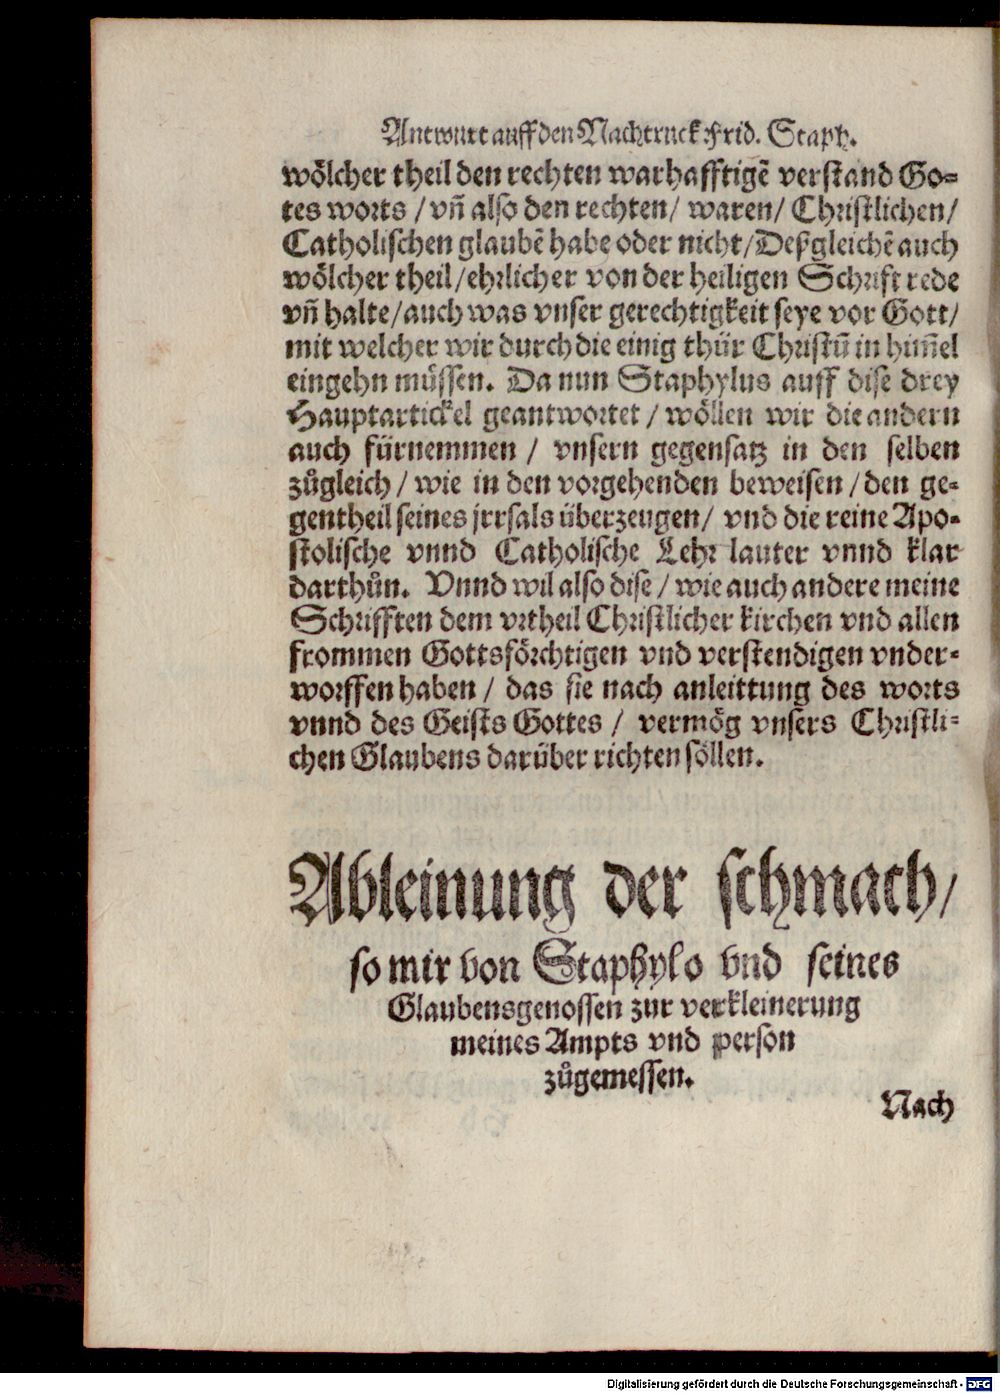 Antwurt auff den Nachtruck Frid. Staph.
wölcher theil den rechten warhafftigẽ verstand Go-
tes worts / vñ also den rechten / waren / Christlichen /
Catholischen glaubẽ habe oder nicht / Deßgleichẽ auch
wölcher theil / ehrlicher von der heiligen Schrift rede
vñ halte / auch was vnser gerechtigkeit seye vor Gott /
mit welcher wir durch die einig thür Christũ in him̃el
eingehn müssen. Da nun Staphylus auff dise drey
Hauptartickel geantwortet / wöllen wir die andern
auch fürnemmen / vnsern gegensatz in den selben
zůgleich / wie in den vorgehenden beweisen / den ge-
gentheil seines jrrsals überzeugen / vnd die reine Apo-
stolische vnnd Catholische Lehr lauter vnnd klar
darthůn. Vnnd wil also dise / wie auch andere meine
Schrifften dem vrtheil Christlicher kirchen vnd allen
frommen Gottsförchtigen vnd verstendigen vnder-
worffen haben / das sie nach anleittung des worts
vnnd des Geists Gottes / vermög vnsers Christli-
chen Glaubens darüber richten söllen.
Ableinung der schmach /
so mir von Staphylo vnd seines
Glaubensgenossen zur verkleinerung
meines Ampts vnd person
zůgemessen.
Nach
Digitalisierung gefördert durch die Deutsche Forschungsgemeinschaft - DFG